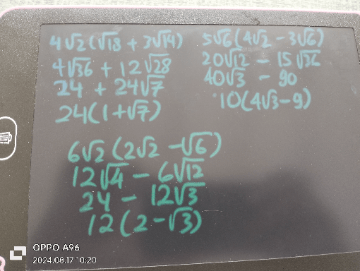 4√2(√18 + 3√14)
4√36 + 12√28
24 + 24√7
24(1+√7)
5√6(4√2 - 3√6)
20√12 - 15√36
40√3 - 90
10(4√3-9)
6√2(2√2 -√6)
12√4 - 6√12
24 - 12√3
12(2-√3)
OPPO A96
2024.08.17 10:20